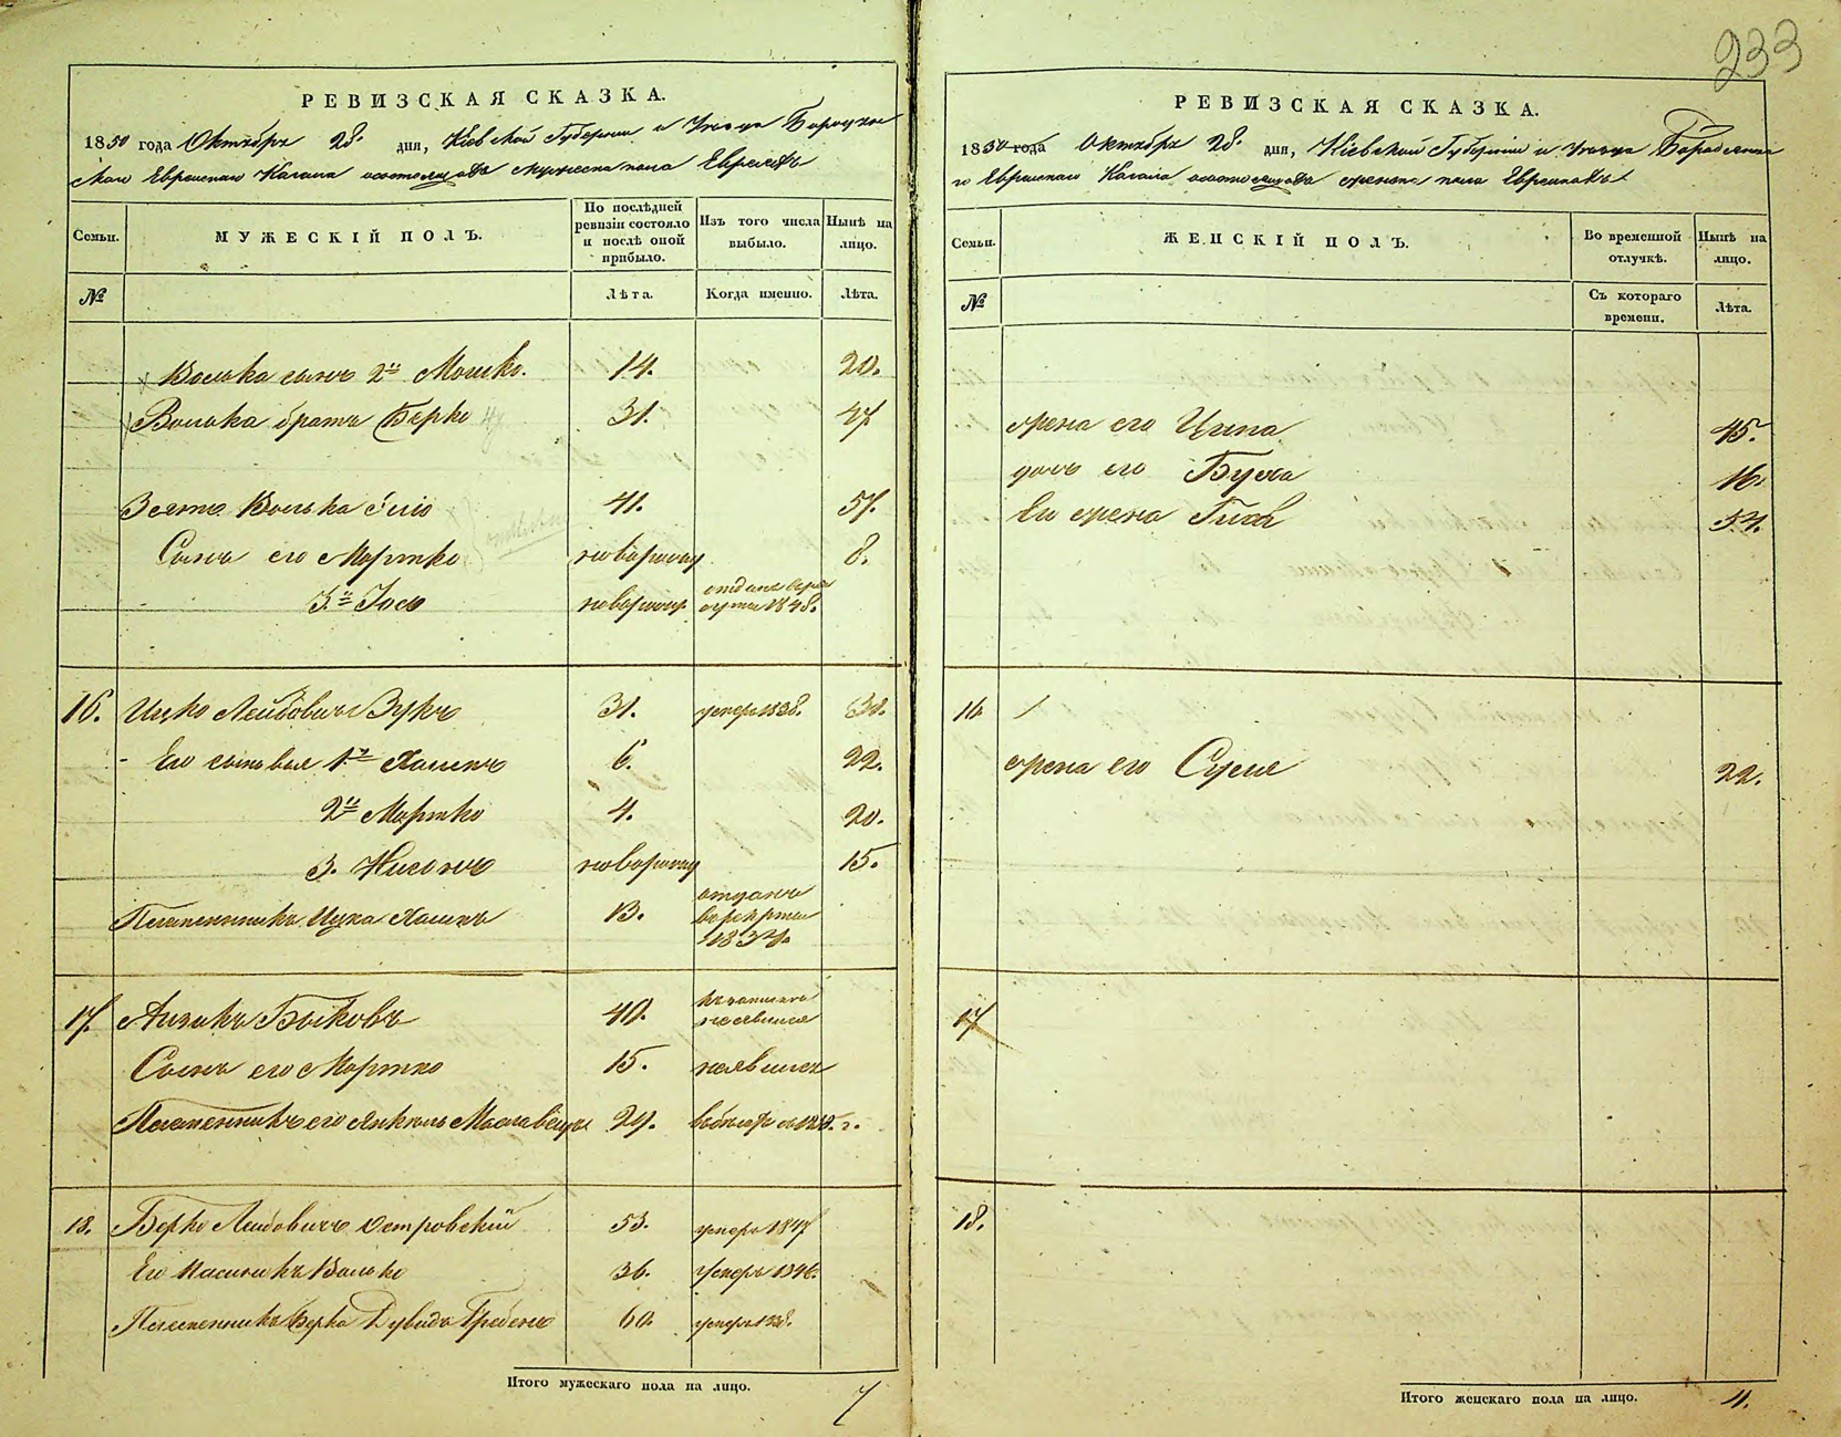 233
РЕВИЗСКАЯ СКАЗКА.
1850 года Октября 28. дня, Кіевской Губерніи и Уезда Бородянско
Еврейскаго Кагала о состоящихъ мужеска пола Евреяхъ
Семьи.
МУЖЕСКІЙ ПОЛЪ.
По послѣдней ревизіи состояло и послѣ оной прибыло.
Изъ того числа выбыло.
Нынѣ на лицо.
№
Лѣта.
Когда именно.
Лѣта.
Волька сынъ 2й Мошко. 14. 20.
Волька братъ Берко 31. 47
Зять Волька 41. 57.
Сынъ его Мортко новорожд 8.
3й Іось новорожд отданъ въ рекруты 1848.
16. Ицко Лейбовичъ Зукъ 31. умеръ 1838.
Его сыновья 1й Хаимъ 6. 22.
2й Мортко 4. 20.
3. Нисонъ новорожд 15.
Племенникъ Ицка Хаимъ 13. отданъ в рекруты 1834.
17. Айзикъ Быковъ 40. неявился
Сынъ его Мортко 15. неявился
Племенникъ его Янкель 29.
18. Берко Лейбовичъ Островскій 53. умеръ 1847
Его пасинокъ Волько 36. Умеръ 1846.
Племенникъ Берка Дувидъ Гребень 60. умеръ 1838.
Итого мужескаго пола на лицо. 7
РЕВИЗСКАЯ СКАЗКА.
1850 года Октября 28. дня, Кіевской Губерніи и Уезда Бородянска
го Еврейскаго Кагала о состоящихъ женска пола Еврейкахъ
Семьи.
ЖЕНСКІЙ ПОЛЪ.
Во временной отлучкѣ.
Нынѣ на лицо.
№
Съ котораго времени.
Лѣта.
жена его Ципа 45.
дочь его Буха 16.
Его жена 54.
16.
жена его Суея 22.
17
18.
Итого женскаго пола на лицо. 4.